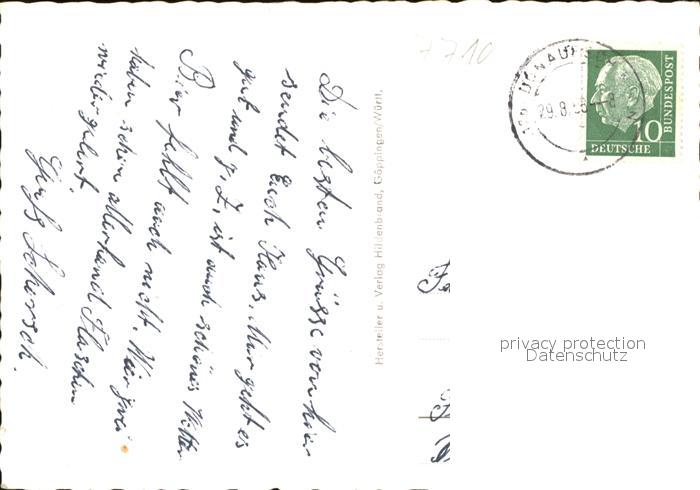 Die besten Grüsse von hier
sendet Euch Klaus. Mir geht es
gut und z. Z. ist auch schönes Wetter
Bier fehlt auch nicht. Wir zwei
haben schon allerhand Flaschen
nieder
Gruß
Hersteller u. Verlag Hildenbrand, Göppingen/Württ.
7710
DONAUES
29.8.58-
10
DEUTSCHE
BUNDESPOST
privacy protection
Datenschutz